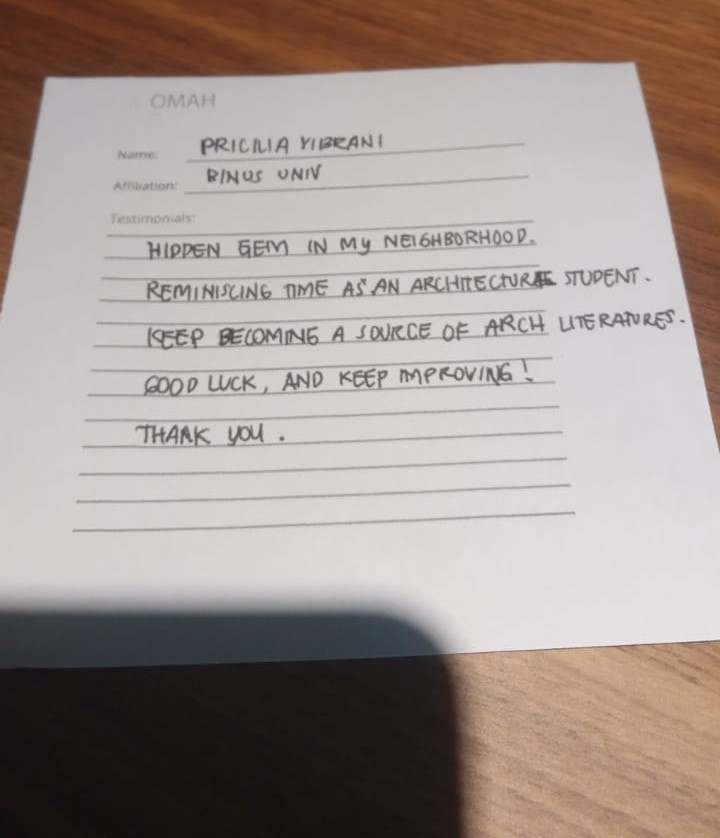 OMAH
Name: PRICILIA YIBRANI
Affiliation: BINUS UNIV
Testimonials:
HIDDEN GEM IN MY NEIGHBORHOOD.
REMINISCING TIME AS AN ARCHITECTURAL STUDENT.
KEEP BECOMING A SOURCE OF ARCH LITERATURES.
GOOD LUCK, AND KEEP IMPROVING!
THANK YOU.